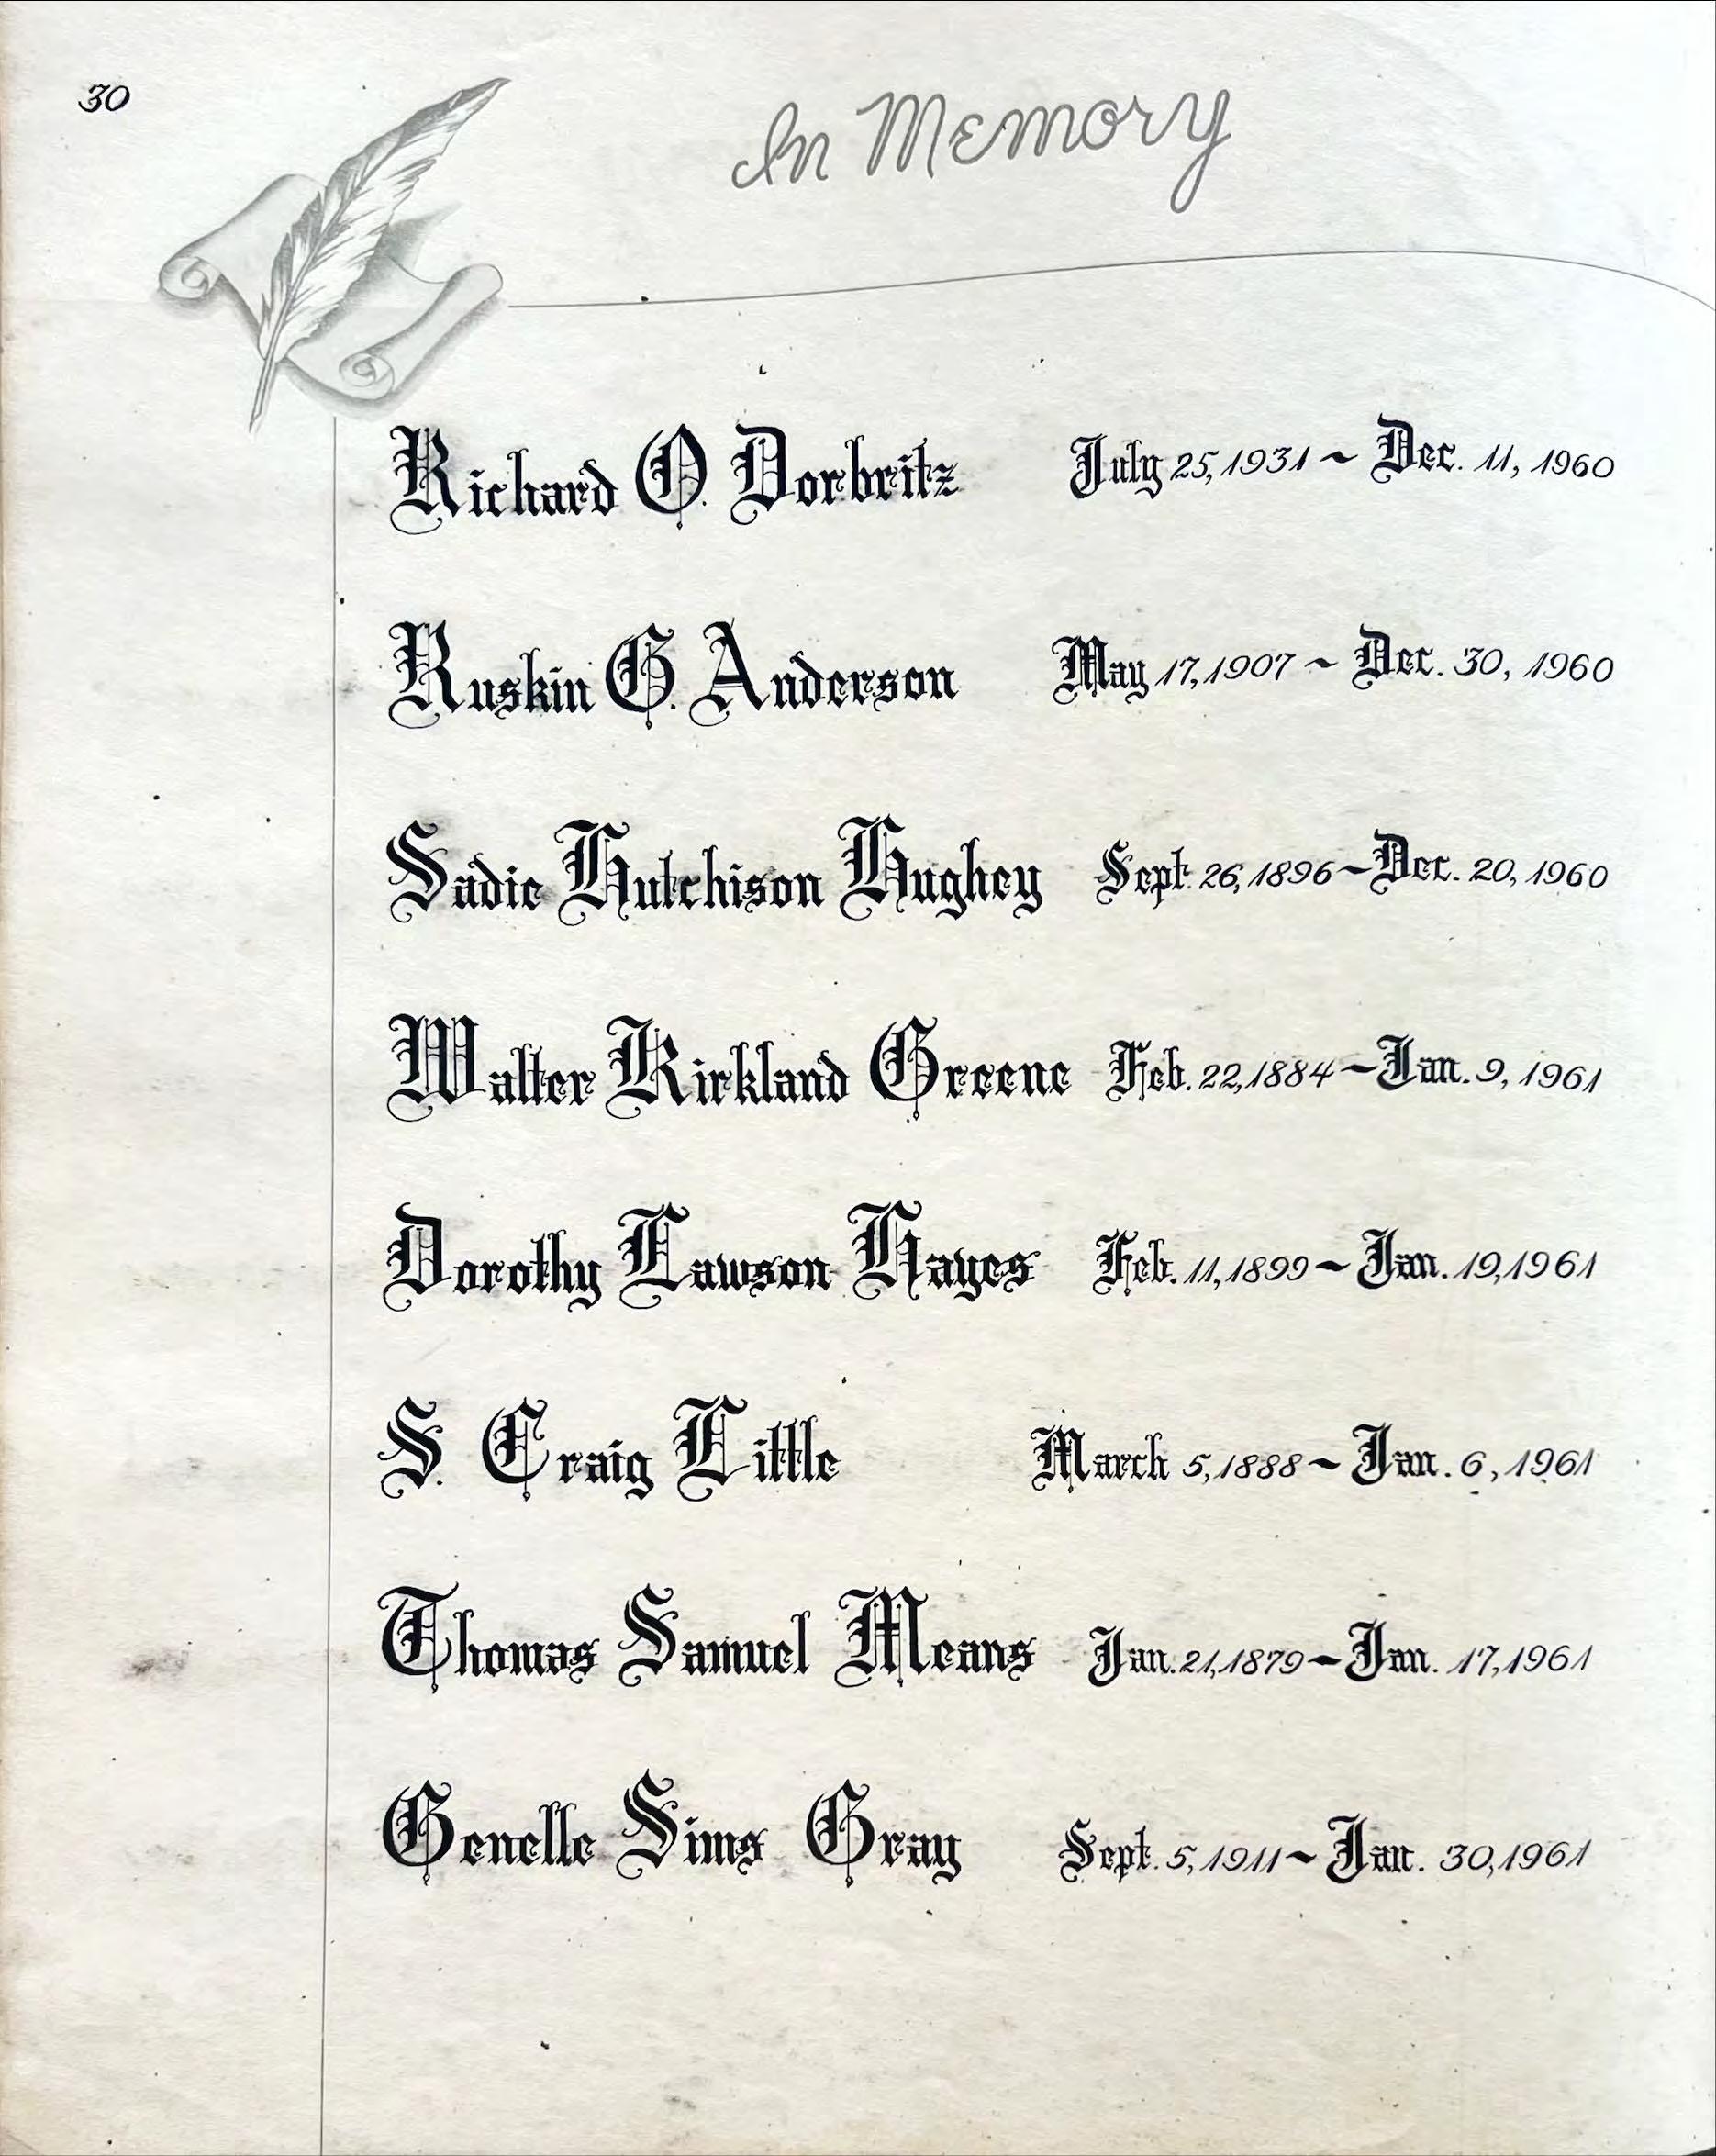 30
In Memory
Richard O. Dorbritz July 25, 1931 ~ Dec. 11, 1960
Ruskin G. Anderson May 17, 1907 ~ Dec. 30, 1960
Sadie Hutchison Hughey Sept. 26, 1896 ~ Dec. 20, 1960
Walter Kirkland Greene Feb. 22, 1884 ~ Jan. 9, 1961
Dorothy Lawson Hayes Feb. 11, 1899 ~ Jan. 19, 1961
S. Craig Little March 5, 1888 ~ Jan. 6, 1961
Thomas Samuel Means Jan. 21, 1879 ~ Jan. 17, 1961
Genelle Sims Gray Sept. 5, 1911 ~ Jan. 30, 1961